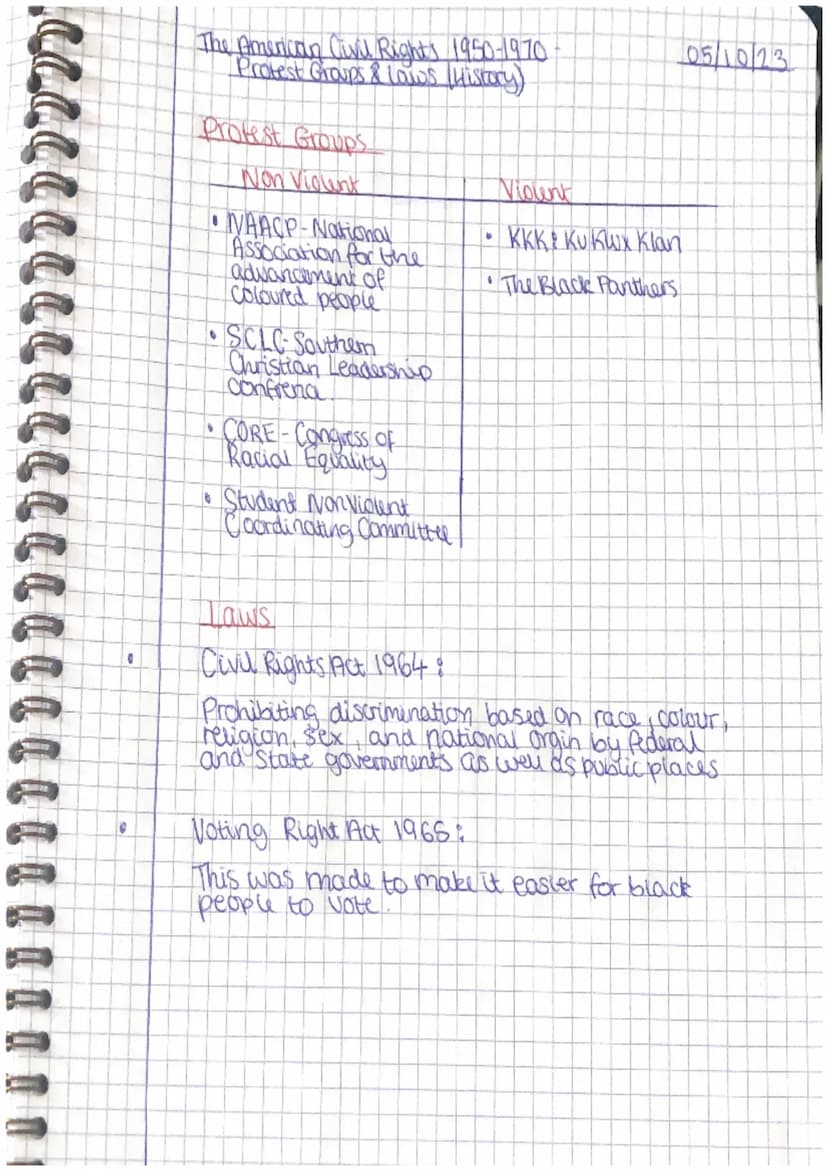 The American Civil Rights 1950-1970 -
05/10/23
Protest Groups & Laws (History)
Protest Groups
Non Violent
Violent
• NAACP - National
Association for the
advancement of
coloured people
• SCLC - Southern
Christian Leadership
confrence
• CORE - Congress of
Racial Equality
• Student Non Violent
Coordinating Committee
• KKK: Ku Klux Klan
• The Black Panthers
Laws
• Civil Rights Act 1964:
Prohibiting discrimination based on race, colour,
religion, sex, and national orgin by federal
and state governments as well as public places
• Voting Right Act 1965:
This was made to make it easier for black
people to vote.